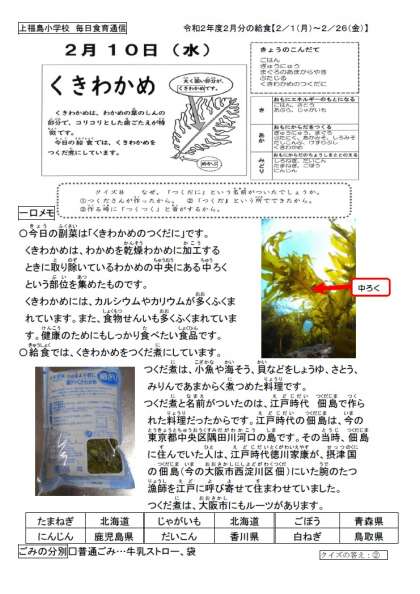 上福島小学校　毎日食育通信
令和2年度2月分の給食【2／1（月）～2／26（金）】
2月10日（水）
くきわかめ
太く固い部分が、くきわかめです。
くきわかめは、わかめの葉のしんの
部分で、コリコリとした歯ごたえが特
徴です。
今日の給食では、くきわかめを
つくだ煮にしています。
めかぶ
きょうのこんだて
ごはん
ぎゅうにゅう
まぐろのあまからやき
ぶたじる
くきわかめのつくだに
き
おもにエネルギーのもとになる
ごはん、さとう
あぶら、じゃがいも
あか
おもにからだをつくる
ぎゅうにゅう、まぐろ
ぶたにく、あかみそ、しろみそ
だしこんぶ、けずりぶし
くきわかめ
みどり
おもにからだのちょうしをととのえる
しろねぎ、だいこん
たまねぎ、ごぼう
にんじん
クイズ8　なぜ、「つくだに」という名前がついたでしょうか。
①つくださんが作ったから。　②「つくだ」という所でできたから。
③作る時に「つくつく」と音がするから。
一口メモ
○今日の副菜は「くきわかめのつくだに」です。
くきわかめは、わかめを乾燥わかめに加工する
ときに取り除いているわかめの中央にある中ろく
という部位を集めたものです。
くきわかめには、カルシウムやカリウムが多くふくま
れています。また、食物せんいも多くふくまれていま
す。健康のためにもしっかり食べたい食品です。
○給食では、くきわかめをつくだ煮にしています。
ゆろく
つくだ煮は、小魚や海そう、貝などをしょうゆ、さとう、
みりんであまからく煮つめた料理です。
つくだ煮と名前がついたのは、江戸時代　佃島で作ら
れた料理だったからです。江戸時代の佃島は、今の
東京都中央区隅田川河口の島です。その当時、佃島
に住んでいた人は、江戸時代徳川家康が、摂津国
の佃島（今の大阪市西淀川区佃）にいた腕のたつ
漁師を江戸に呼び寄せて住まわせていました。
つくだ煮は、大阪市にもルーツがあります。
たまねぎ　北海道　じゃがいも　北海道　ごぼう　青森県
にんじん　鹿児島県　だいこん　香川県　白ねぎ　鳥取県
ごみの分別　□普通ごみ…牛乳ストロー、袋
クイズの答え：②